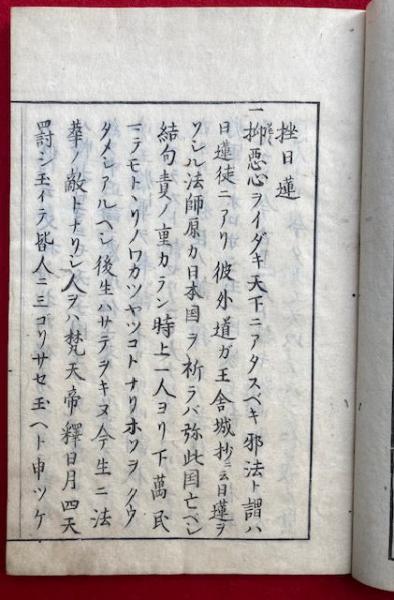 挫日蓮
一抑悪心ヲイダキ天下ニアタスベキ邪法ト謂ハ
日蓮徒ニアリ彼外道ガ王舎城抄ニ云日蓮ヲ
ソシル法師原カ日本国ヲ祈ラバ弥此国亡ヘシ
結句責ノ重カラン時上一人ヨリ下萬民
ニラモトヽリノワカツヤツコトナリホソヲクウ
タメシアルヘシ後生ハサテヲキヌ今生ニ法
華ノ敵トナリシ人ヲハ梵天帝釋日月四天
罸シ玉イテ皆人ニ三コリサセ玉ヘト申ツケ